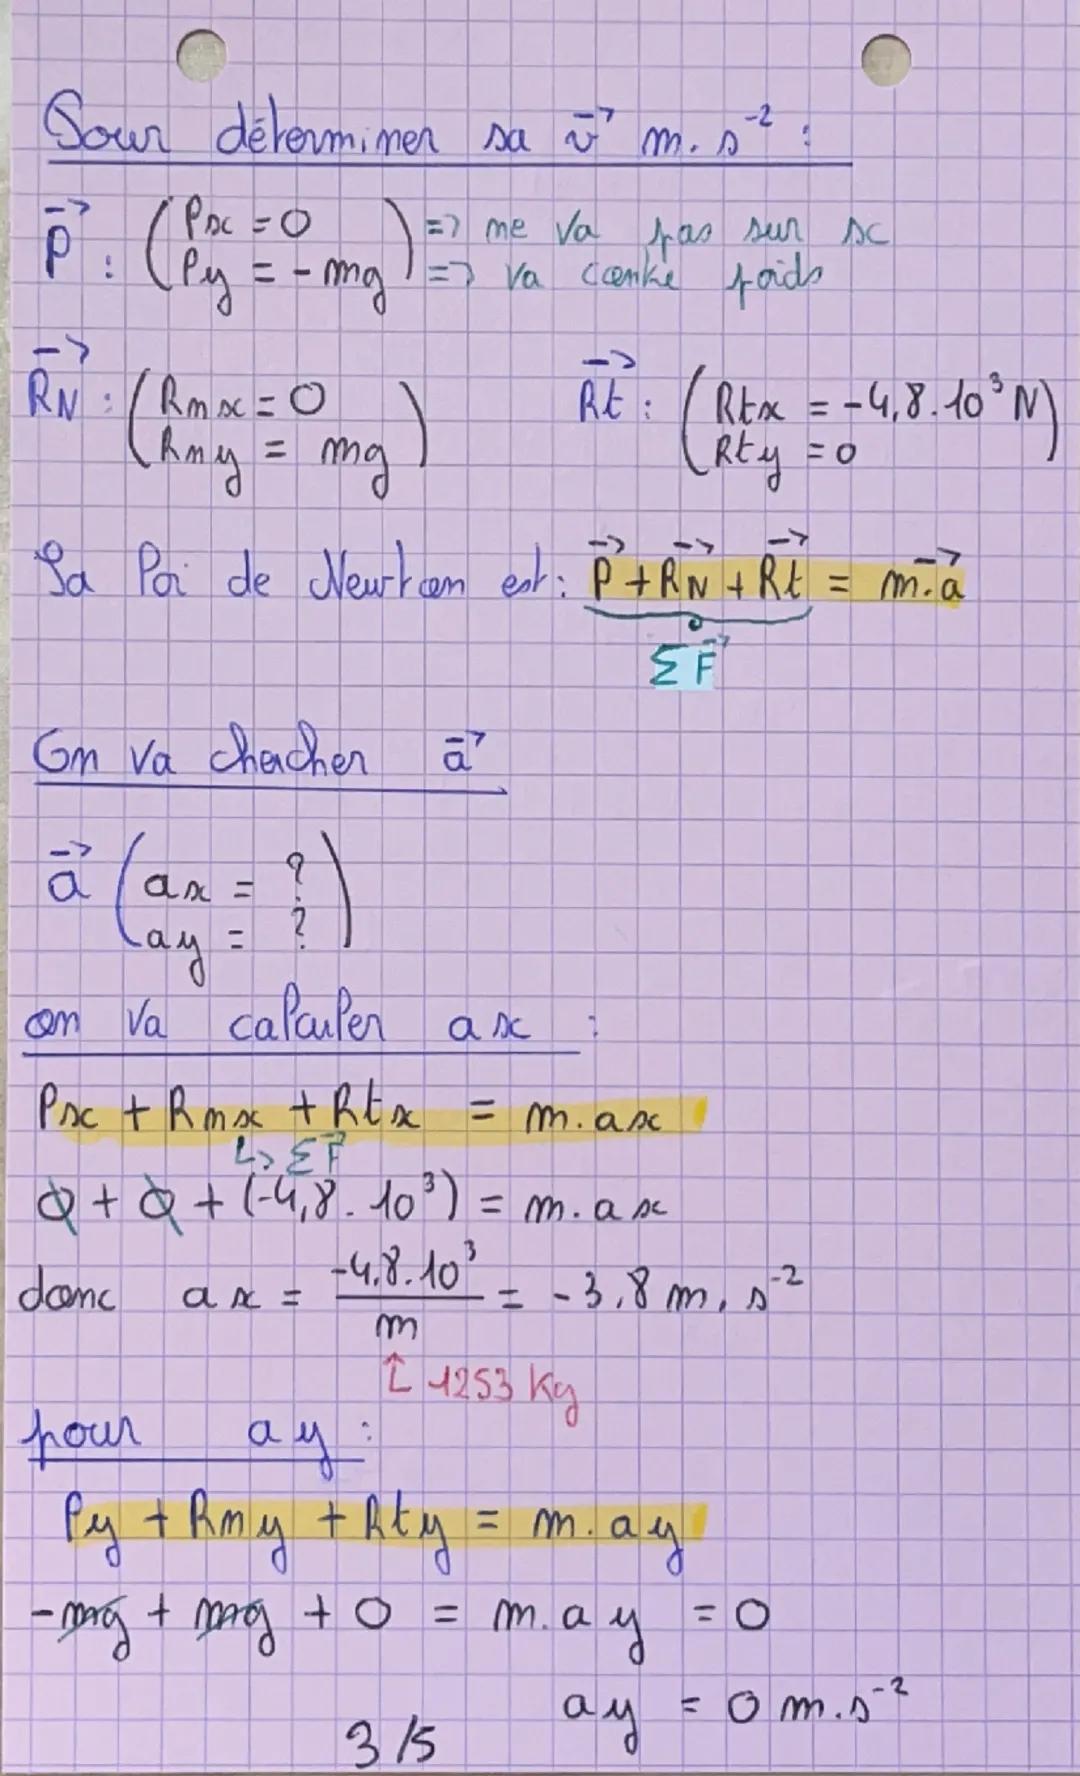 Pour déterminer sa v⃗ m.s⁻² :
P⃗ : (Px = 0 ) => ne va pas sur x
(Py = - mg ) => va contre poids
R⃗N : (Rnx = 0 ) R⃗t : (Rtx = -4,8.10³ N)
(Rny = mg ) (Rty = 0
La loi de Newton est : P⃗ + R⃗N + R⃗t = m.a⃗
ΣF⃗
On va chercher a⃗
a⃗ (ax = ? )
(ay = ? )
on va calculer ax :
Px + Rnx + Rtx = m.ax
↳ ΣF⃗
0 + 0 + (-4,8.10³) = m.ax
donc ax = -4,8.10³ / m = -3,8 m.s⁻²
↑ 1253 Kg
pour ay :
Py + Rny + Rty = m.ay
-mg + mg + 0 = m.ay = 0
ay = 0 m.s⁻²
3/5